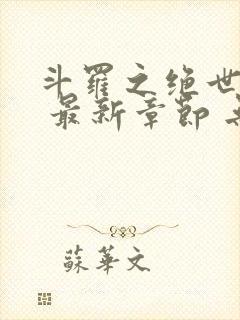 斗羅之绝世
最新章節
蘇華文